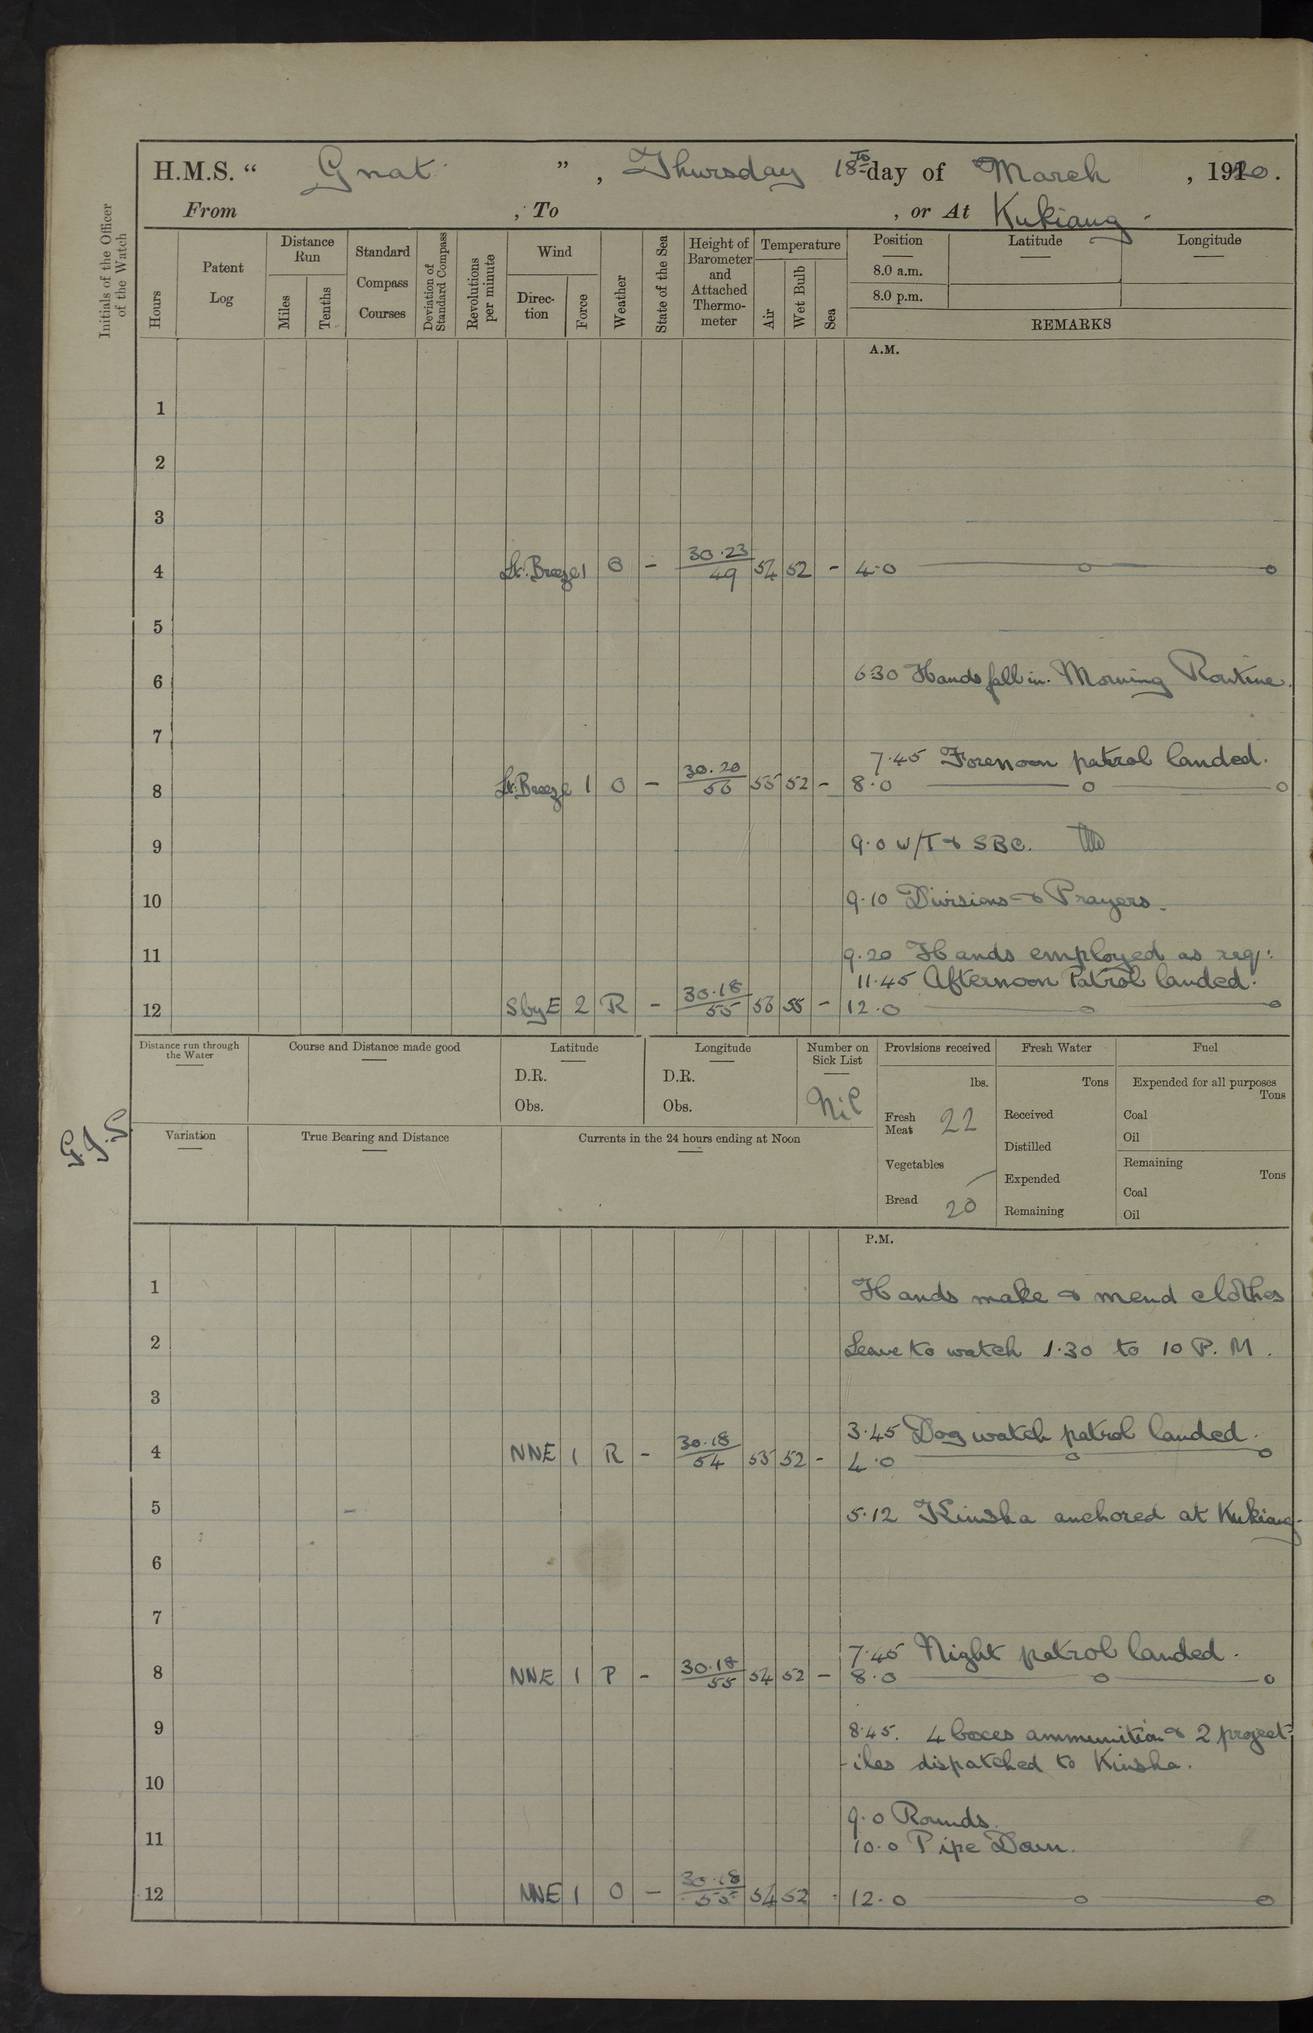 H.M.S. “ Gnat ” , Thursday 18th day of March , 1920.
From , To , or At Kukiang.
Initials of the Officer of the Watch
Hours
Patent Log
Distance Run
Miles
Tenths
Standard Compass Courses
Deviation of Standard Compass
Revolutions per minute
Wind
Direc-tion
Force
Weather
State of the Sea
Height of Barometer and Attached Thermo-meter
Temperature
Air
Wet Bulb
Sea
Position
Latitude
Longitude
8.0 a.m.
8.0 p.m.
REMARKS
A.M.
1
2
3
4 Lt. Breeze 1 O - 30.23/49 54 52 - 4.0 —o—o
5
6 630 Hands fall in. Morning Routine.
7
7.45 Forenoon patrol landed.
8 Lt. Breeze 1 O - 30.20/56 55 52 - 8.0 —o—o
9 9.0 W/T & SBC.
10 9.10 Divisions & Prayers.
11 9.20 Hands employed as req:
11.45 Afternoon Patrol landed.
12 S by E 2 R - 30.18/55 56 55 - 12.0 —o—o
Distance run through the Water
Course and Distance made good
Latitude
D.R.
Obs.
Longitude
D.R.
Obs.
Number on Sick List
Nil
Provisions received
lbs.
Fresh Meat 22
Vegetables
Bread 20
Fresh Water
Tons
Received
Distilled
Expended
Remaining
Fuel
Expended for all purposes
Tons
Coal
Oil
Remaining
Tons
Coal
Oil
G.J.S
Variation
True Bearing and Distance
Currents in the 24 hours ending at Noon
P.M.
1 Hands make & mend clothes
2 Leave to watch 1.30 to 10 P.M.
3
3.45 Dog watch patrol landed.
4 NNE 1 R - 30.18/54 55 52 - 4.0 —o—o
5 5.12 Kinsha anchored at Kukiang.
6
7
7.45 Night patrol landed.
8 NNE 1 P - 30.18/55 54 52 - 8.0 —o—o
9 8.45. 4 boxes ammunition & 2 project-
-iles dispatched to Kinsha.
10
9.0 Rounds.
11 10.0 Pipe Down.
12 NNE 1 O - 30.18/55 54 52 - 12.0 —o—o